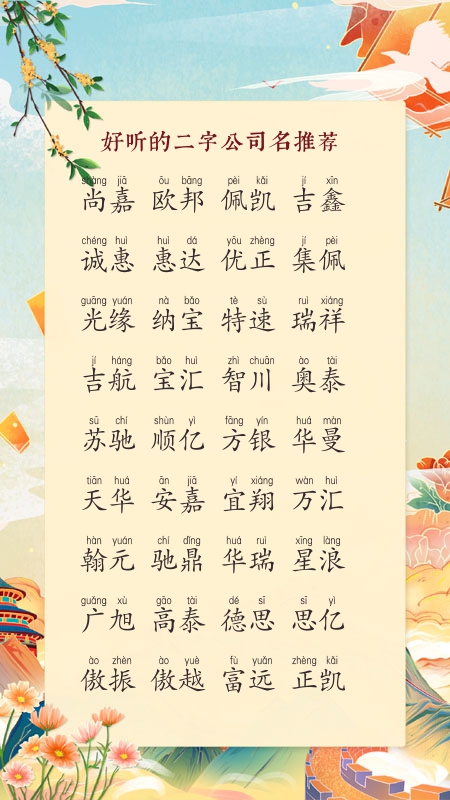 好听的二字公司名推荐
shàng jiā ōu bāng pèi kǎi jí xīn
尚嘉 欧邦 佩凯 吉鑫
chéng huì huì dá yōu zhèng jí pèi
诚惠 惠达 优正 集佩
guāng yuán nà bǎo tè sù ruì xiáng
光缘 纳宝 特速 瑞祥
jí háng bǎo huì zhì chuān ào tài
吉航 宝汇 智川 奥泰
sū chí shùn yì fāng yín huá màn
苏驰 顺亿 方银 华曼
tiān huá ān jiā yí xiáng wàn huì
天华 安嘉 宜翔 万汇
hàn yuán chí dǐng huá ruì xīng làng
翰元 驰鼎 华瑞 星浪
guǎng xù gāo tài dé sī sī yì
广旭 高泰 德思 思亿
ào zhèn ào yuè fù yuǎn zhèng kǎi
傲振 傲越 富远 正凯